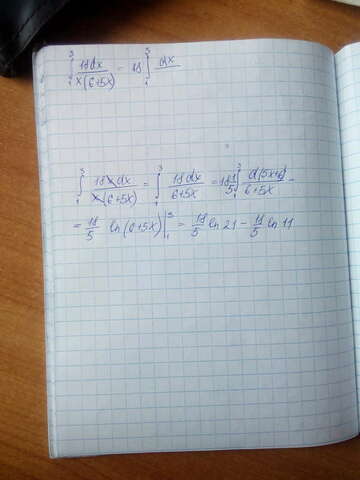 ∫₁³ 18dx / x(6+5x) = 18 ∫₁³ dx /
∫₁³ 18x dx / x(6+5x) = ∫₁³ 18dx / 6+5x = 18·1/5 ∫₁³ d(5x+6) / 6+5x =
= 18/5 ln(6+5x)|₁³ = 18/5 ln 21 − 18/5 ln 11